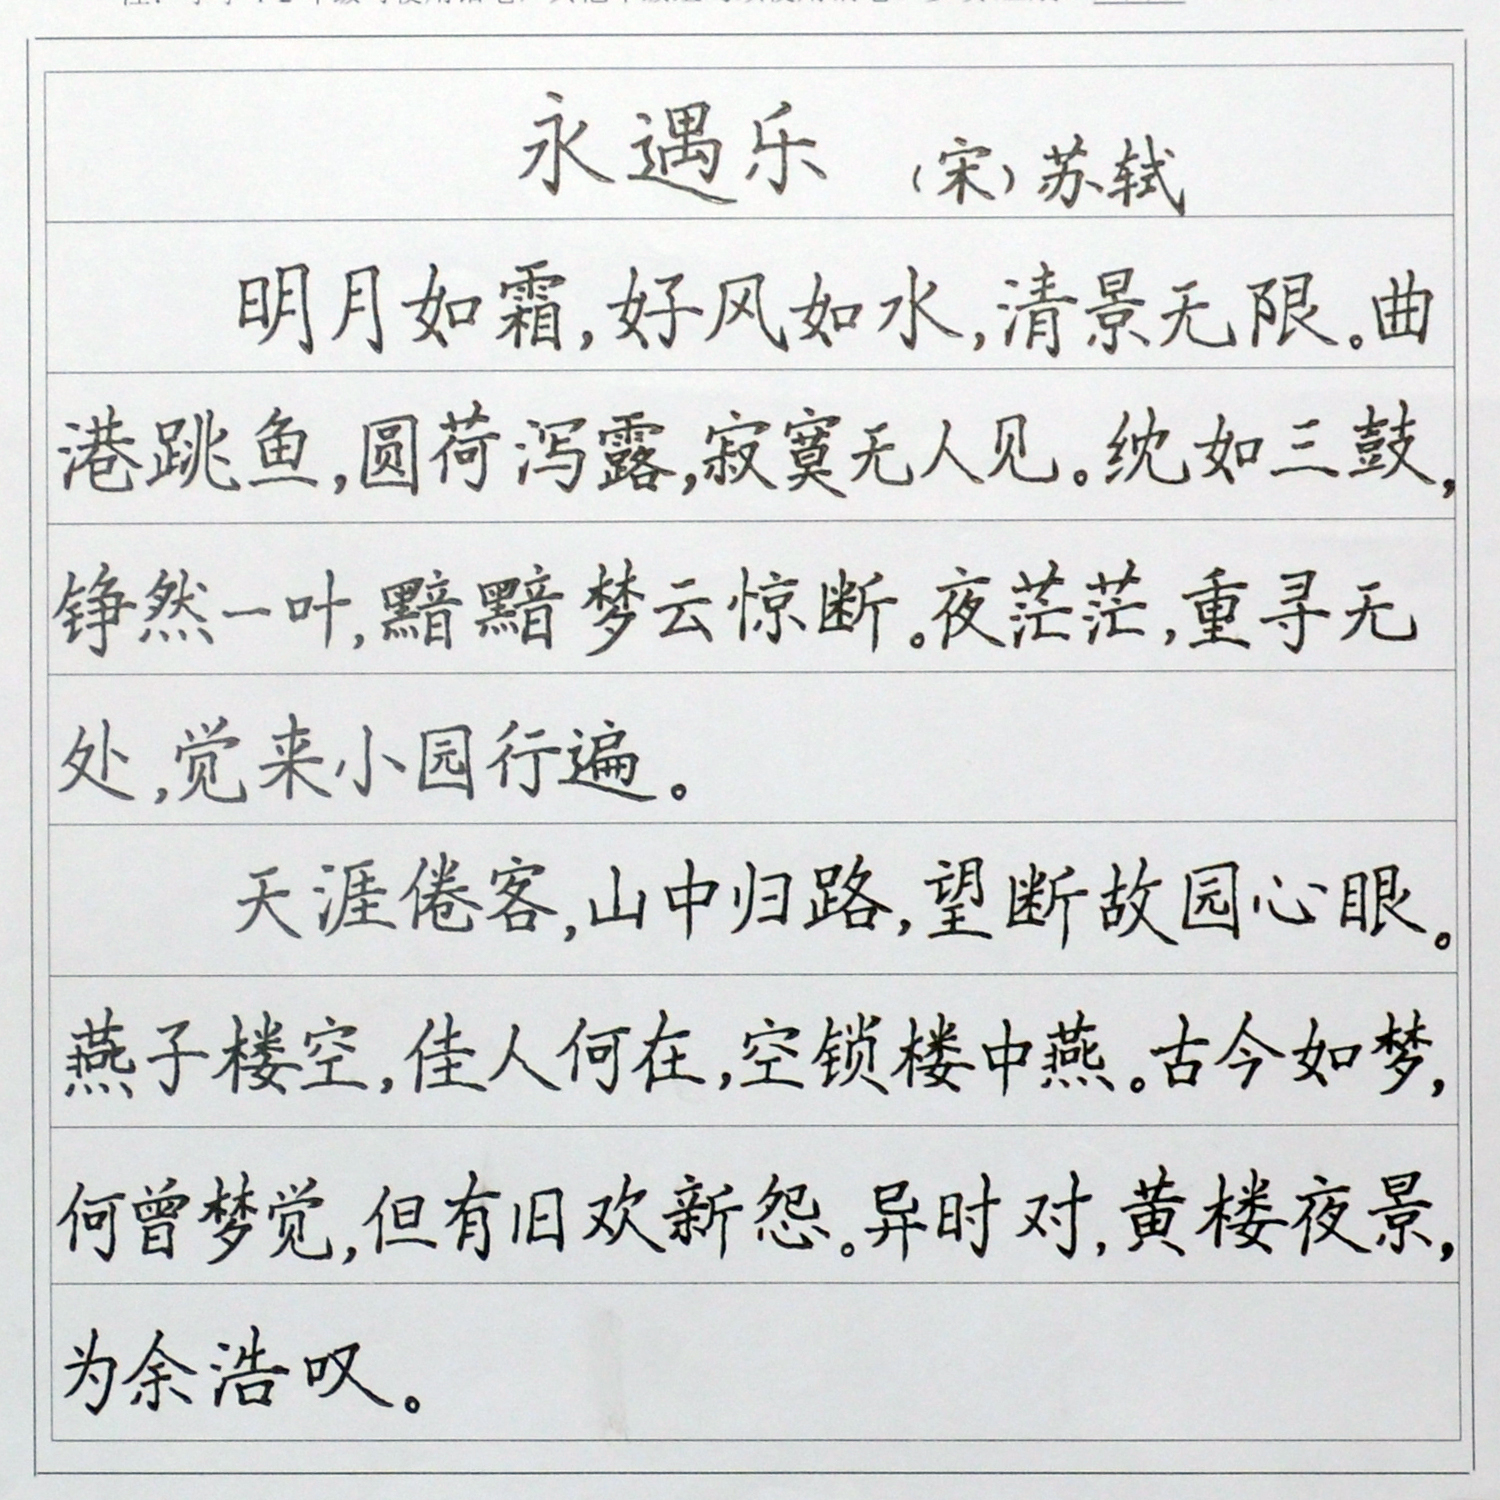 永遇乐 (宋)苏轼
明月如霜,好风如水,清景无限。曲
港跳鱼,圆荷泻露,寂寞无人见。纨如三鼓,
铮然一叶,黯黯梦云惊断。夜茫茫,重寻无
处,觉来小园行遍。
天涯倦客,山中归路,望断故园心眼。
燕子楼空,佳人何在,空锁楼中燕。古今如梦,
何曾梦觉,但有旧欢新怨。异时对,黄楼夜景,
为余浩叹。